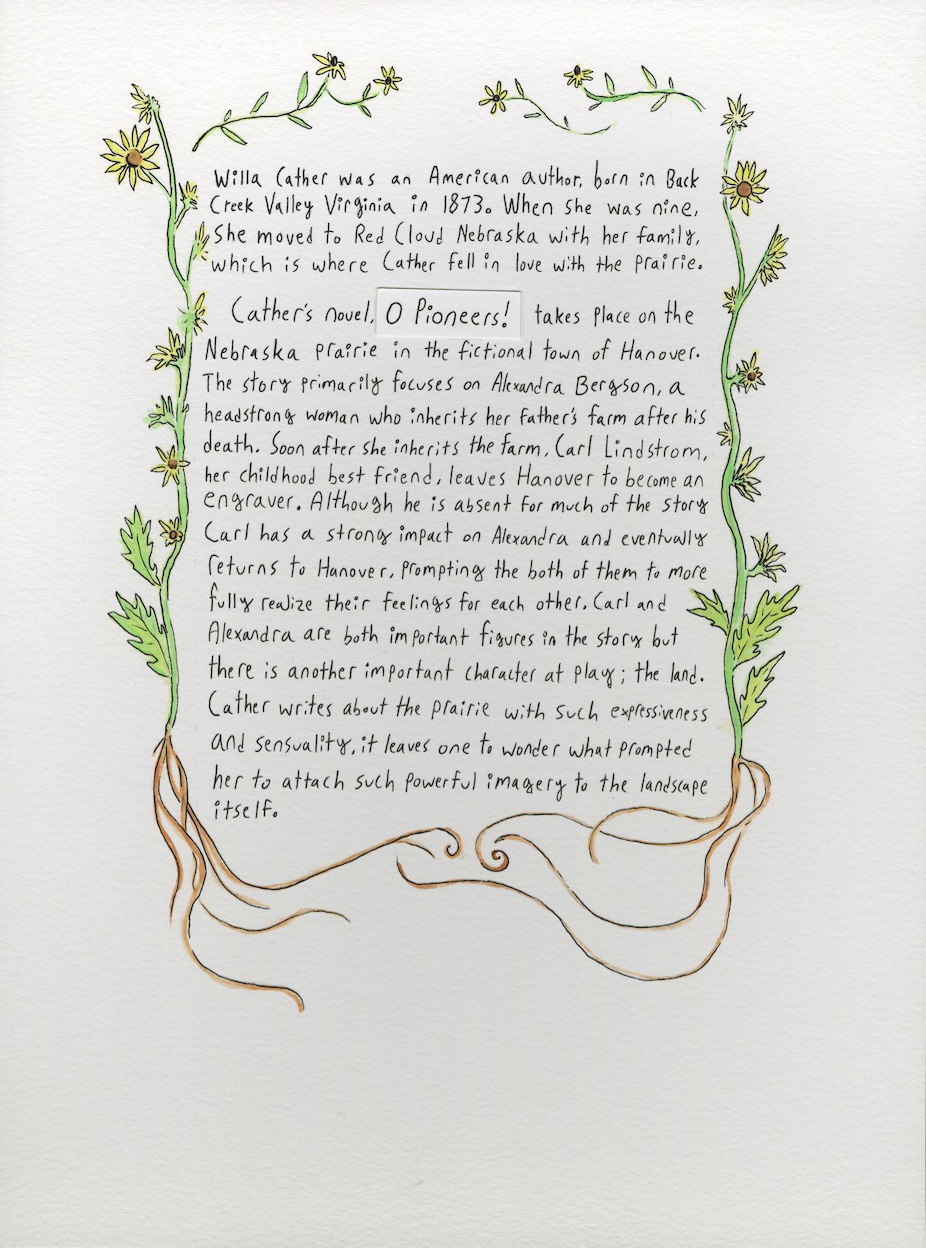 Willa Cather was an American author, born in Back
Creek Valley Virginia in 1873. When she was nine,
she moved to Red Cloud Nebraska with her family,
which is where Cather fell in love with the prairie.
Cather's novel, O Pioneers! takes place on the
Nebraska prairie in the fictional town of Hanover.
The story primarily focuses on Alexandra Bergson, a
headstrong woman who inherits her father's farm after his
death. Soon after she inherits the farm, Carl Lindstrom,
her childhood best friend, leaves Hanover to become an
engraver. Although he is absent for much of the story
Carl has a strong impact on Alexandra and eventually
returns to Hanover, prompting the both of them to more
fully realize their feelings for each other. Carl and
Alexandra are both important figures in the story but
there is another important character at play; the land.
Cather writes about the prairie with such expressiveness
and sensuality, it leaves one to wonder what prompted
her to attach such powerful imagery to the landscape
itself.